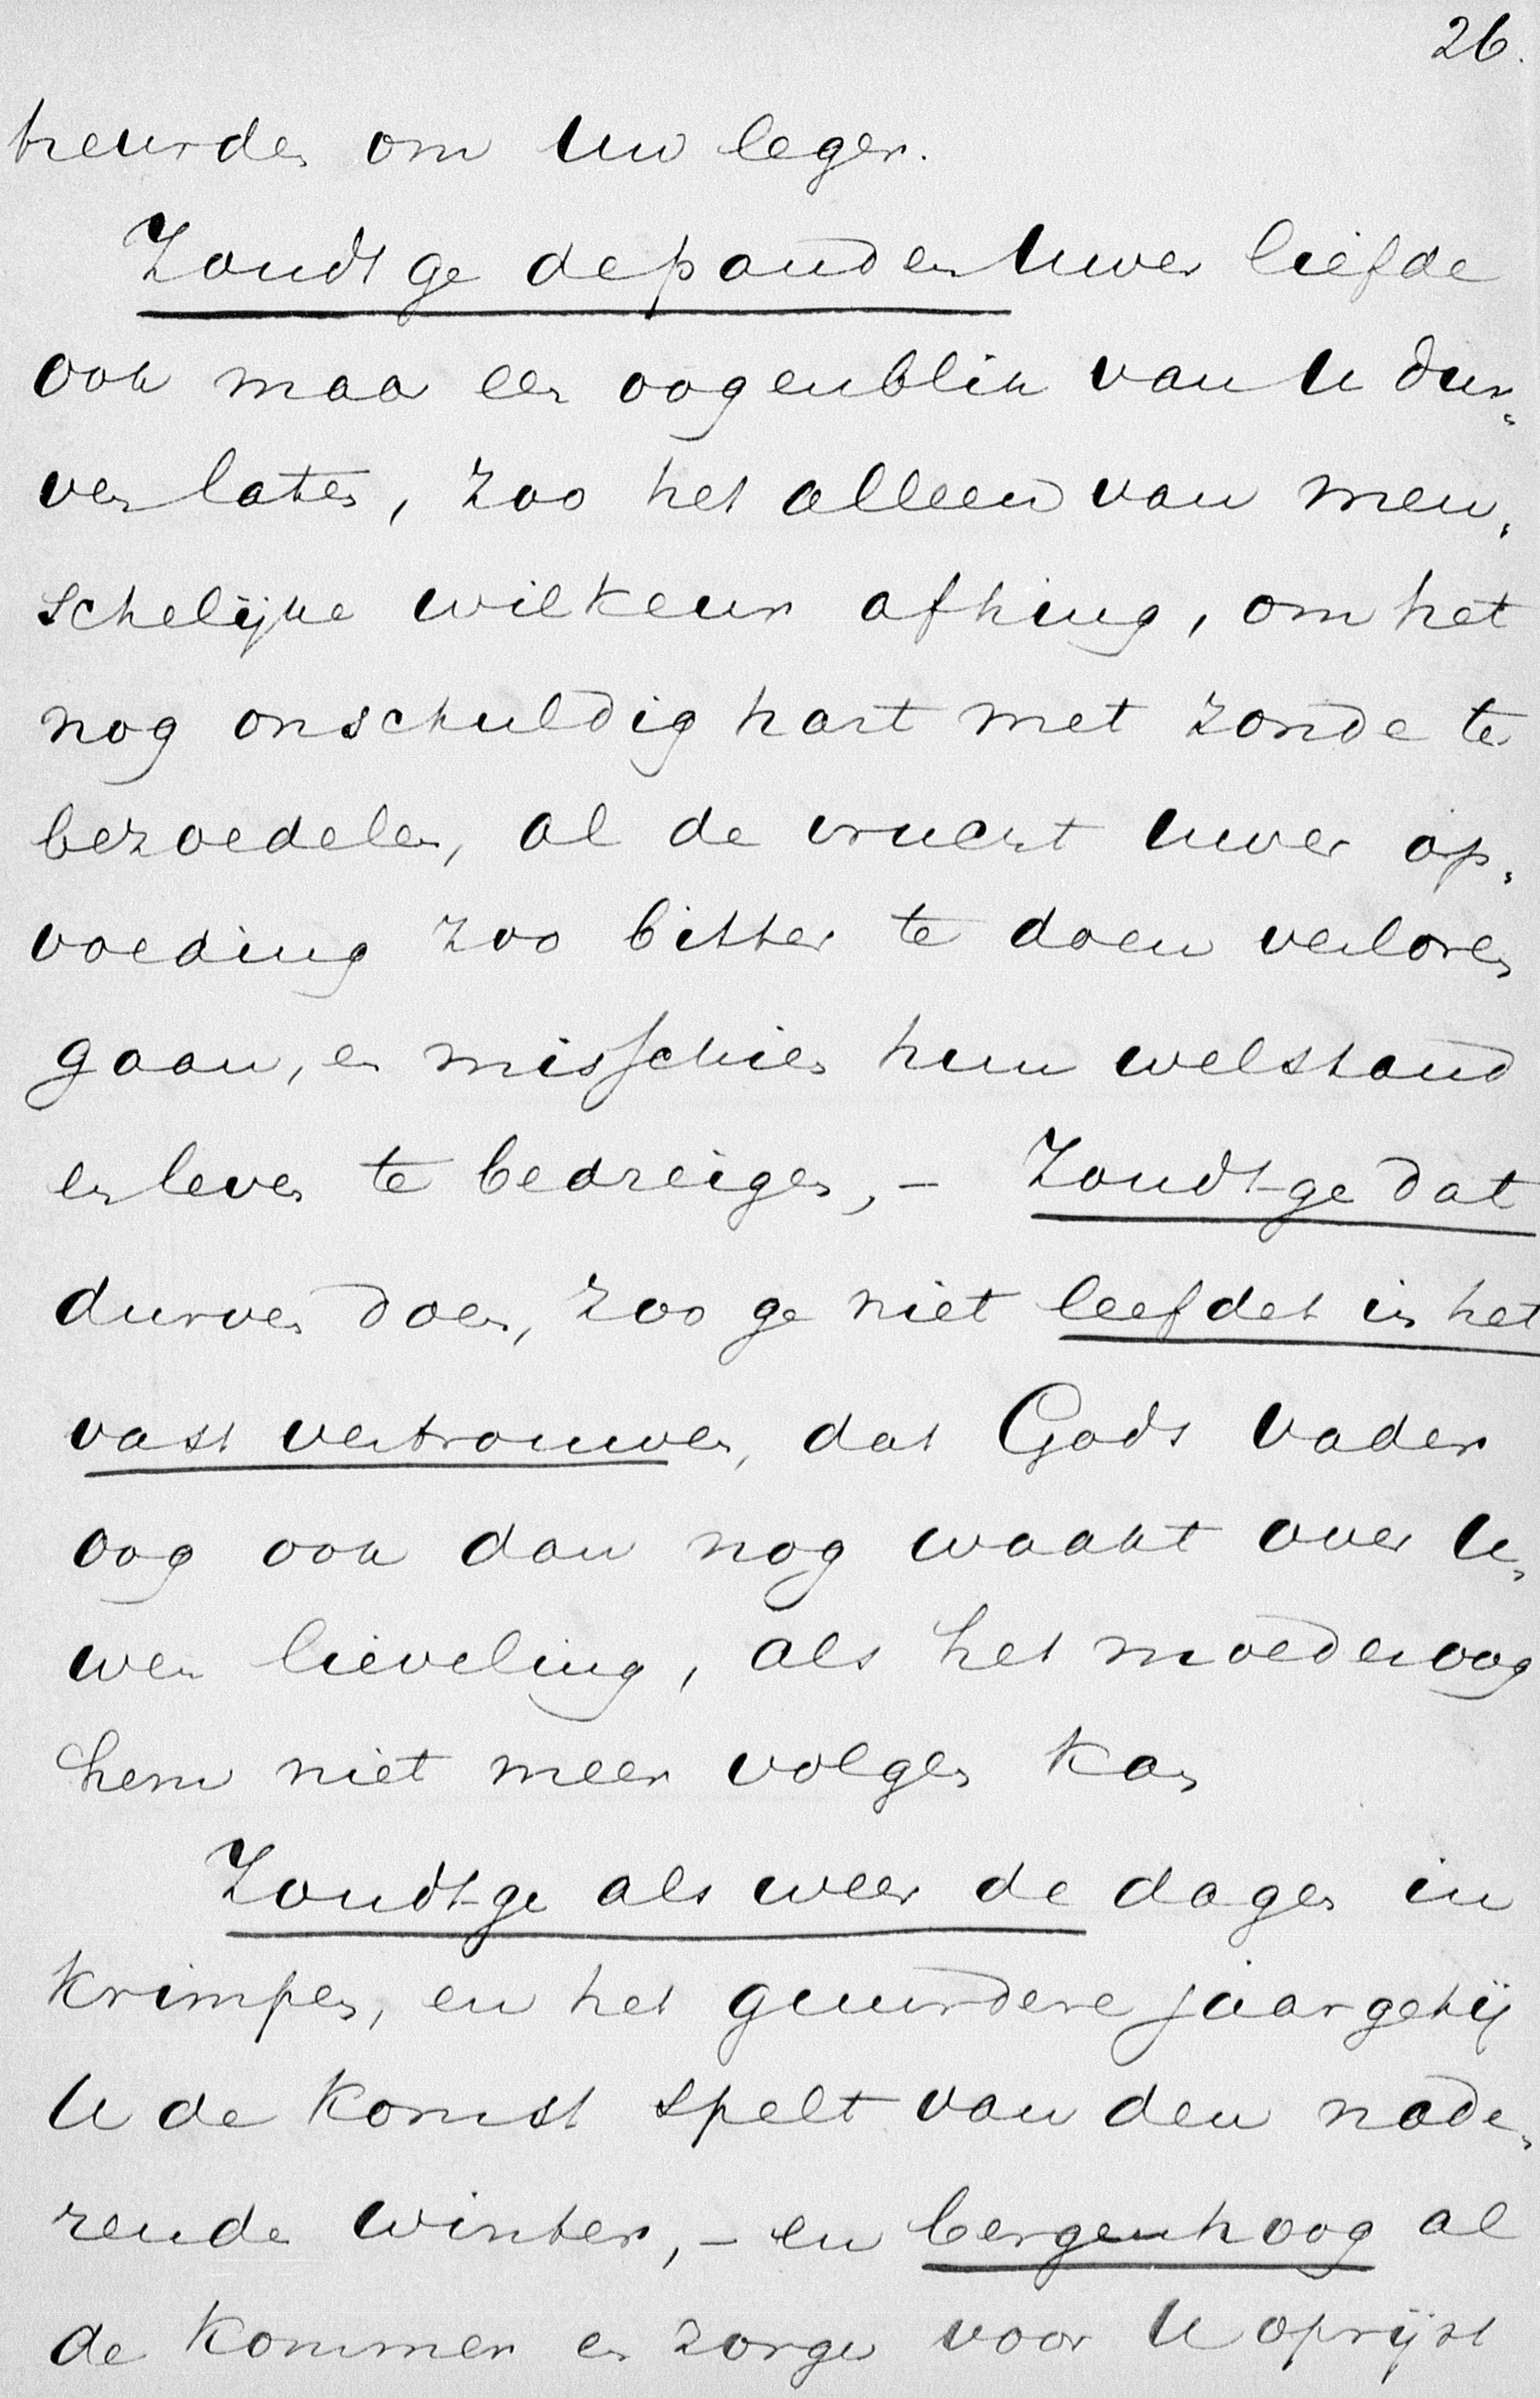 26.
treurden om Uw leger.
Zoudt ge de panden Uwer liefde
ook maar een oogenblik van U dur„
ven laten, zoo het alleen van men„
schelijke wilkeur afhing, om het
nog onschuldig hart met zonde te
bezoedelen, al de vrucht Uwer op„
voeding zoo bitter te doen verloren
gaan, en misschien hun welstand
en leven te bedreigen, – Zoudt-ge dat
durven doen, zoo ge niet leefdet in het
vast vertrouwen, dat Gods vader
oog ook dan nog waakt over U„
wen lieveling, als het moederoog
hem niet meer volgen kan
Zoudt-ge als weer de dagen in
krimpen, en het guurdere jaargetij
U de komst spelt van den nade„
rende winter, – en bergenhoog al
de kommer en zorgen voor U oprijst